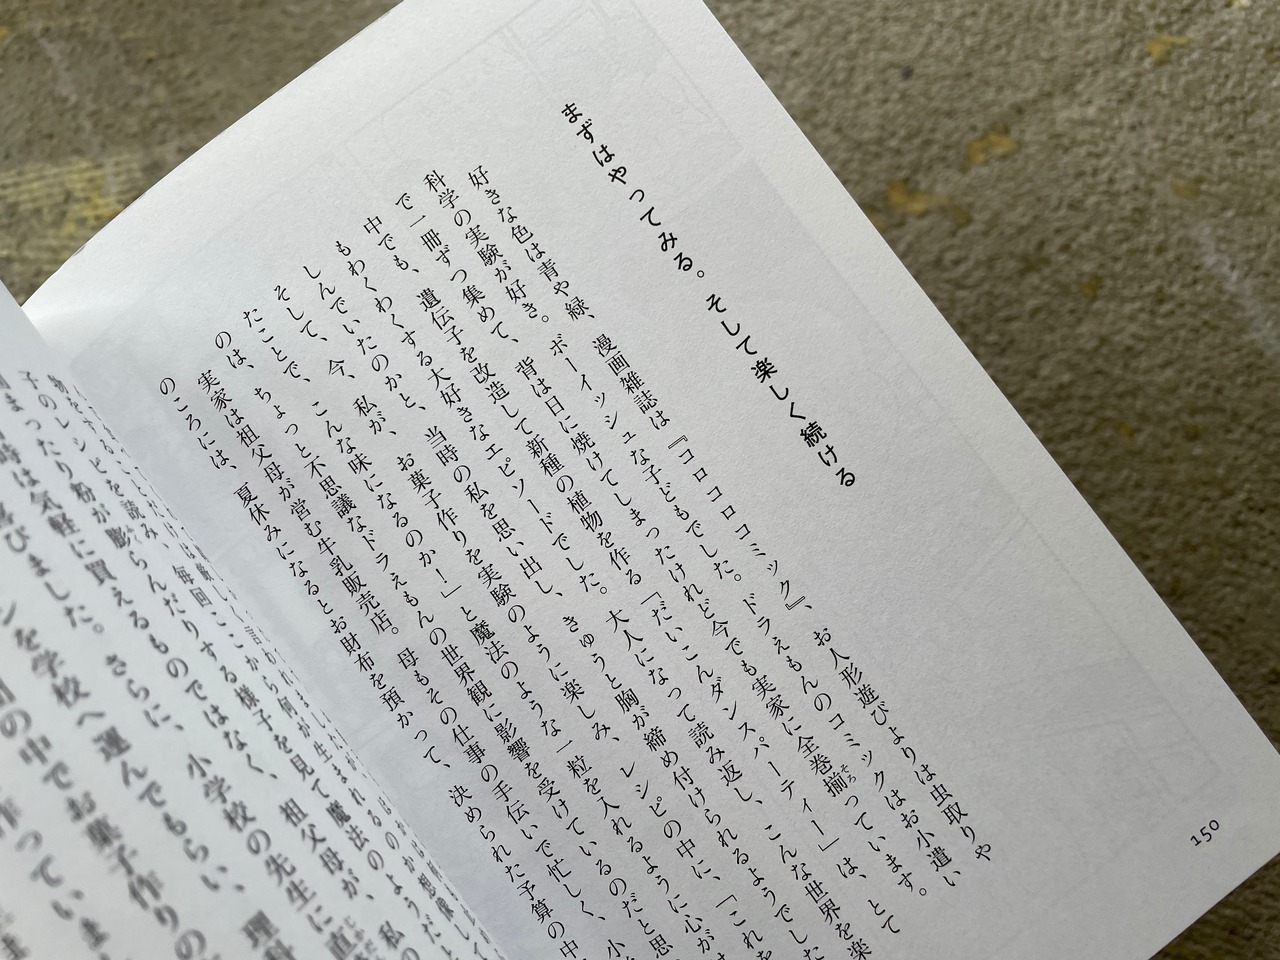 まずはやってみる。そして楽しく続ける
好きな色は青や緑、漫画雑誌は『コロコロコミック』、お人形遊びよりは虫取りや
科学の実験が好き。ボーイッシュな子どもでした。ドラえもんのコミックはお小遣い
で一冊ずつ集めて、背は日に焼けてしまったけれど今でも実家に全巻揃っています。
中でも、遺伝子を改造して新種の植物を作る「だいこんダンスパーティー」は、とて
もわくわくする大好きなエピソードでした。大人になって読み返し、こんな世界を楽
しんでいたのかと、当時の私を思い出し、きゅうと胸が締め付けられるようでした
そして、今、私が、お菓子作りを実験のように楽しみ、レシピの中に、「これを
たことで、こんな味になるのか！」と魔法のような一粒を入れるように心が
のは、ちょっと不思議なドラえもんの世界観に影響を受けているのだと思
実家は祖父母が営む牛乳販売店。母もその仕事の手伝いで忙しく、小
のころには、夏休みになるとお財布を預かって、決められた予算の中
150
毎回ここから何が生まれるのか想像し
まったり粉が膨らんだりする様子を見て魔法のようだと
時は気軽に買えるものではなく、祖父母が、私の
喜びました。さらに、小学校の先生に直
ンを学校へ運んでもらい、理科
の中でお菓子作りの
作っていま